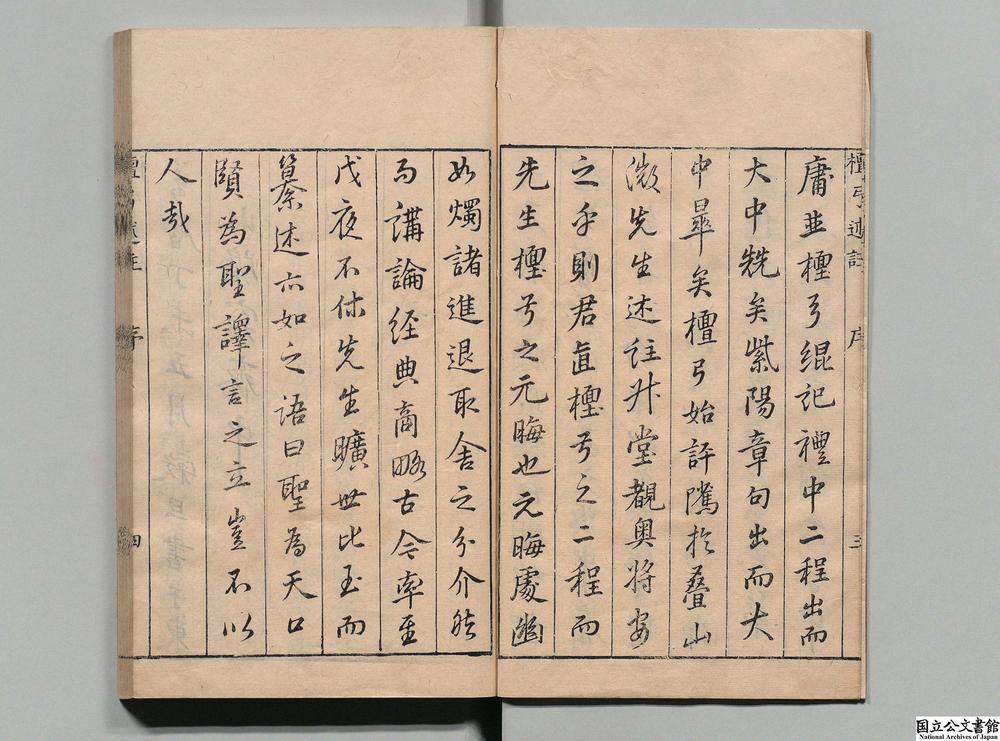 檀弓述註 序 三
庸並檀弓緄記禮中二程出而
大中兟矣紫陽章句出而大
中畢矣檀弓始許隲於疊山
微先生述註升堂覩奧將安
之乎則君直檀弓之二程而
先生檀弓之元晦也元晦處幽
如燭諸進退取舍之分介然
而講論經典商略古今率至
戊夜不休先生曠世比玉而
纂述亦如之語曰聖為天口
賢為聖譯言之立豈不以
人哉
序 四
国立公文書館
National Archives of Japan